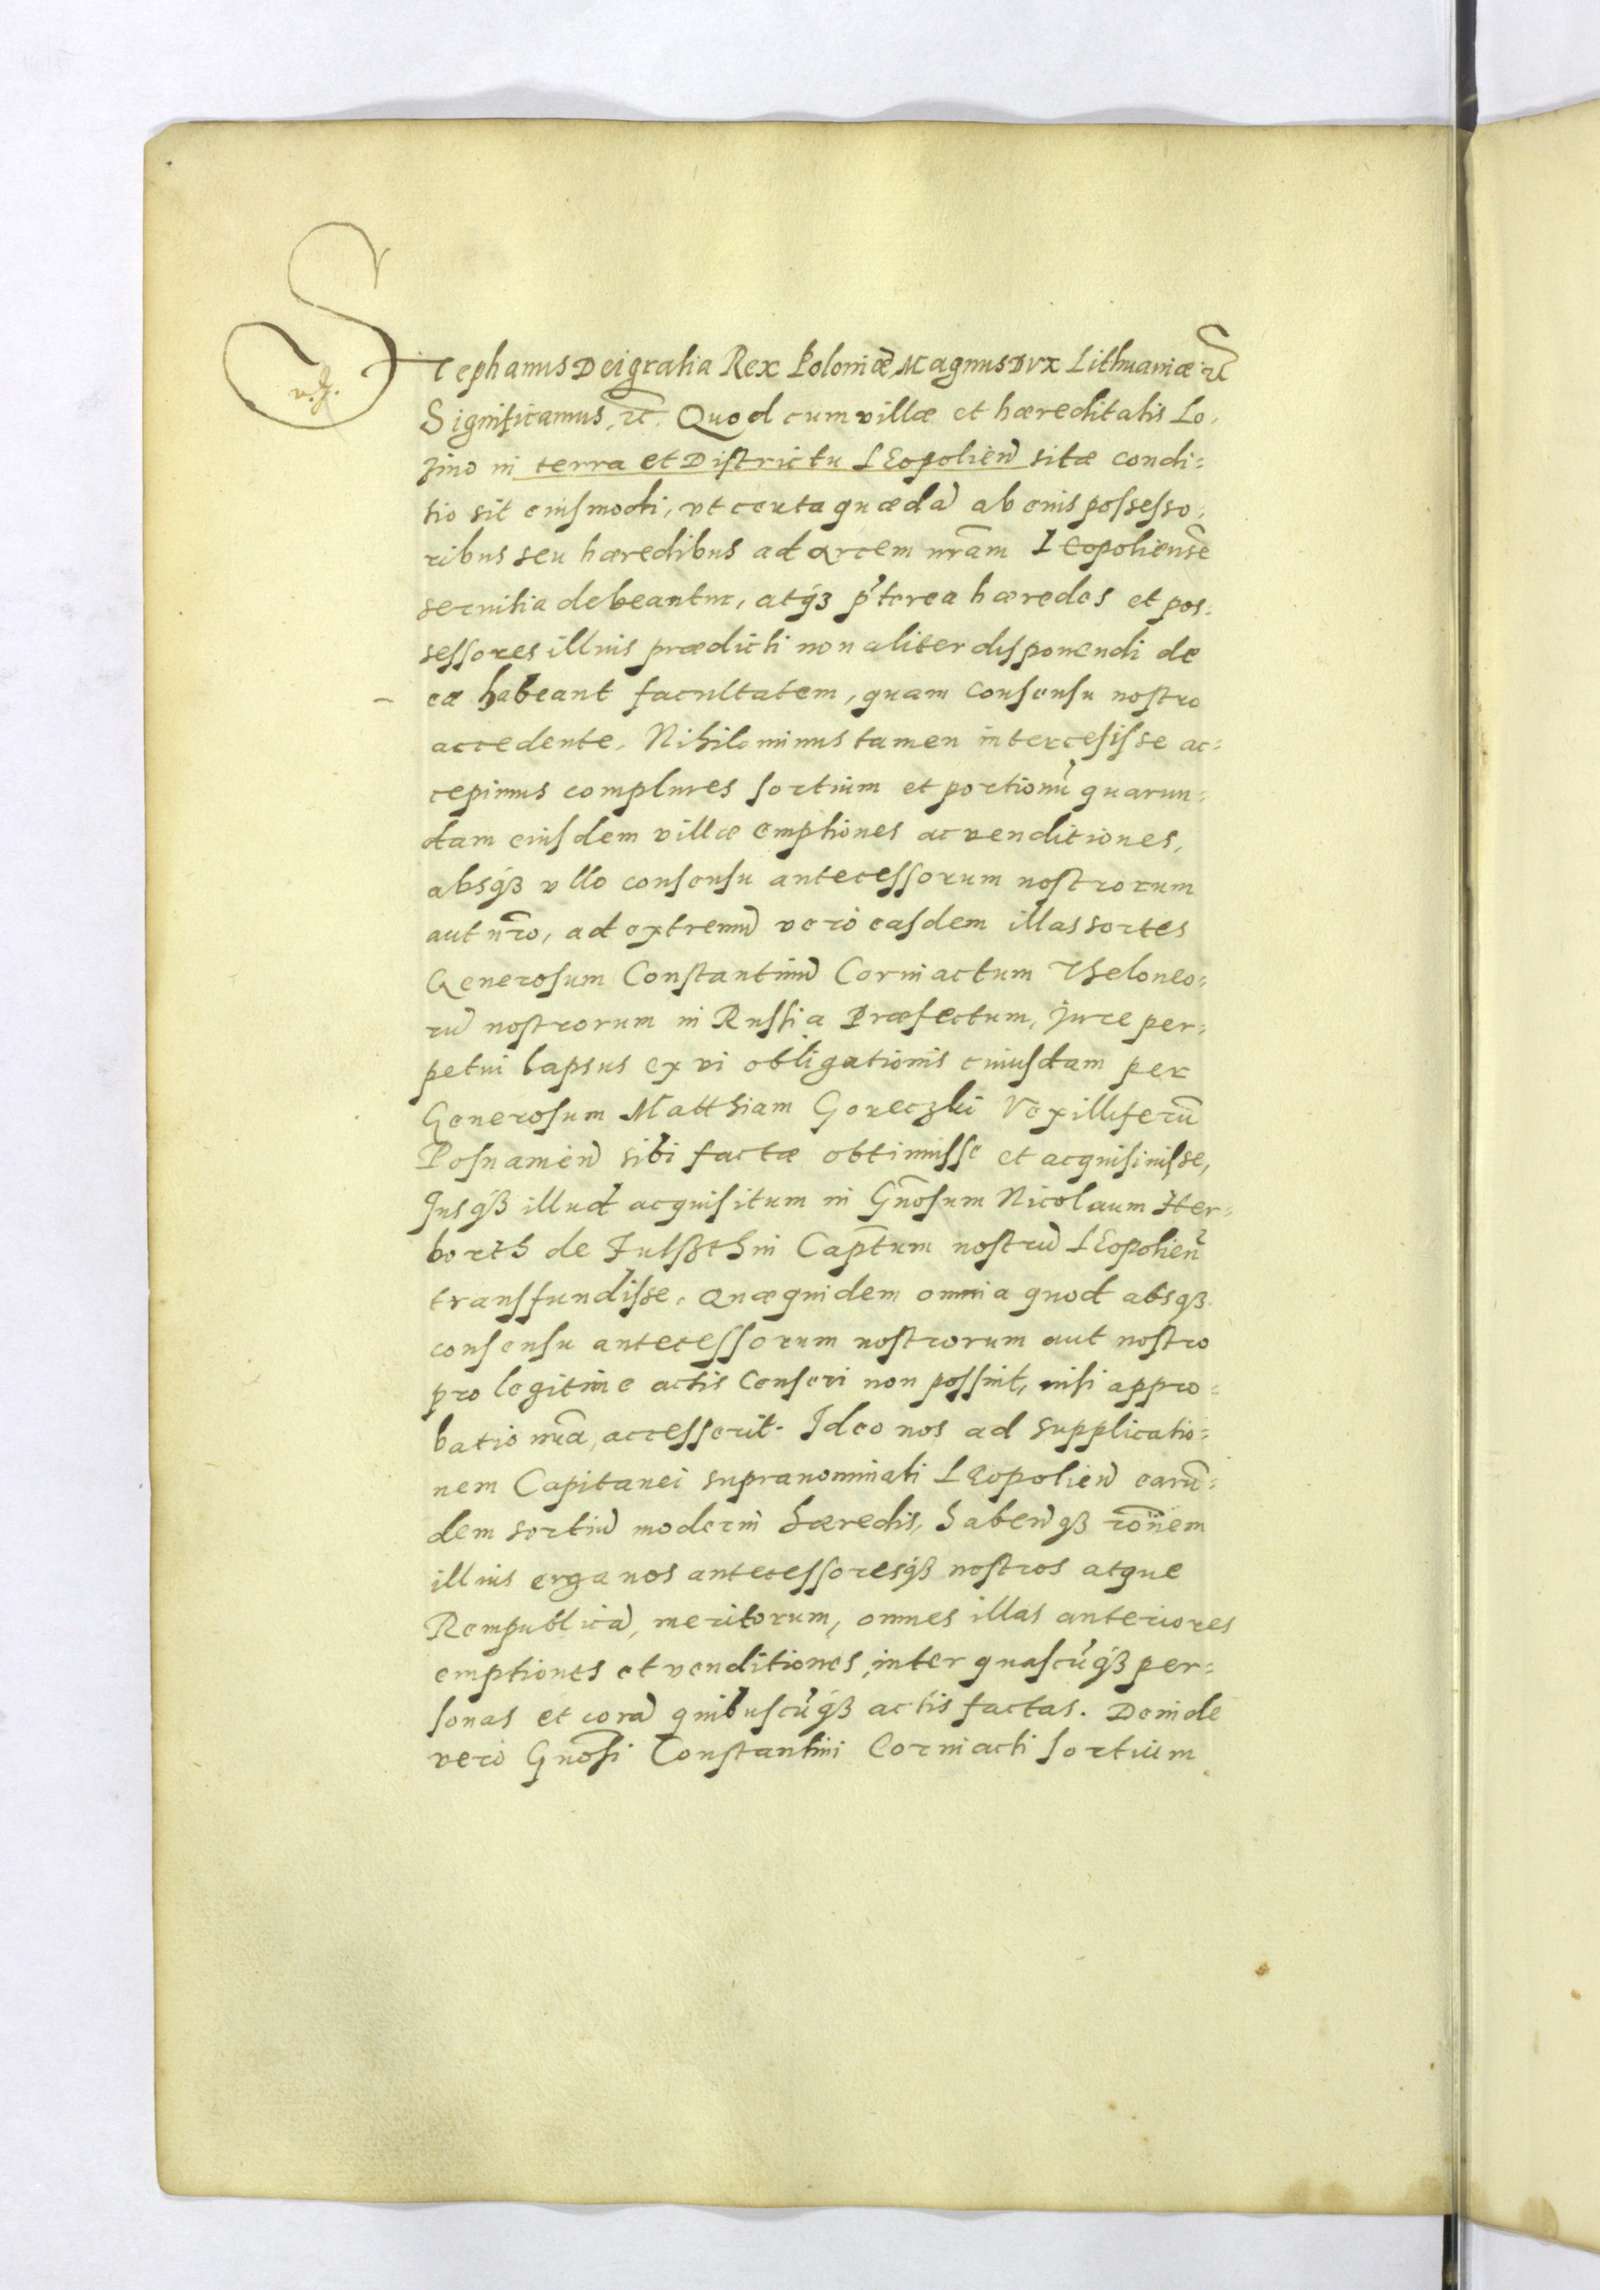 Stephanus Dei gratia Rex Poloniæ, Magnus Dux Lithuaniæ ꝛc̃
Significamus, ꝛc̃. Quod cum villæ et hæreditatis Lo-
zino in terra et Districtu LEopolien̄ sitæ condi=
tio sit eiusmodi, vt certa quædā ab eius possesso=
ribus seu hæredibus ad arcem nr̄am LEopoliensē
seruitia debeantur, atqꝫ p̄terea hæredes et pos=
sessores illius prædicti non aliter disponendi de
ea habeant facultatem, quam consensu nostro
accedente. Nihilominus tamen intercessisse ac=
cepimus complures sortium et portionū quarun=
dam eiusdem villæ emptiones ac venditiones,
absqꝫ vllo consensu antecessorum nostrorum
aut nr̄o, ad extremū verò easdem illas sortes
Generosum Constantinū Corniactum Theloneo=
rū nostrorum in Russia Præfectum, jure per=
petui lapsus ex vi obligationis cuiusdam per
Generosum Matthiam Goreczki Vexilliferū
Posnamien̄ sibi factæ obtinuisse et acquisiuisse,
Jusqꝫ illud acquisitum in Gn̄osum Nicolaum Her=
borth de Fulßthin Cap̄tum nostrū LEopolien̄
transfundisse. Quæquidem omnia quod absqꝫ
consensu antecessorum nostrorum aut nostro
pro legitime actis censeri non possint, nisi appro=
batio nr̄a, accesserit. Ideo nos ad supplicatio=
nem Capitanei supranominati LEopolien̄ earū=
dem sortiū moderni hæredis, haben̄qꝫ rōnem
illius erga nos antecessoresqꝫ nostros atque
Rempublicā, meritorum, omnes illas anteriores
emptiones et venditiones, inter quascūqꝫ per=
sonas et corā quibuscūqꝫ actis factas. Deinde
verò Gn̄osi Constantini Corniacti sortium